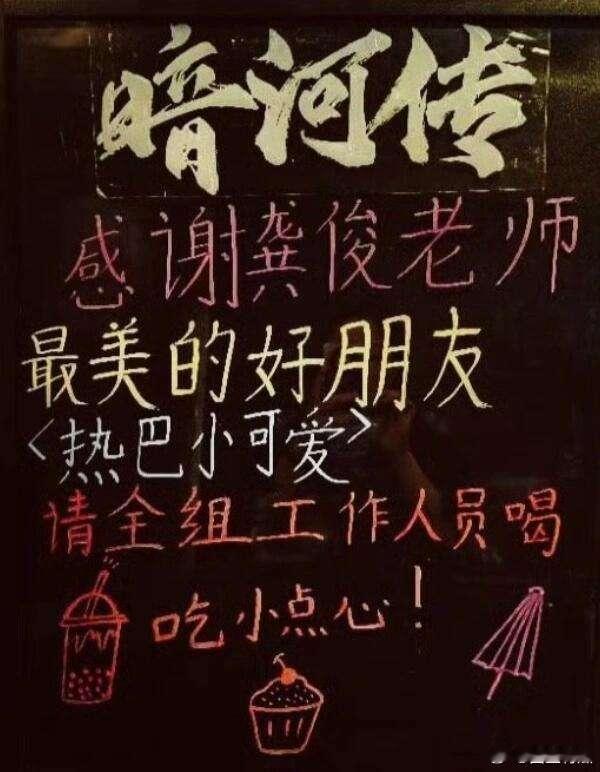 暗河传
感谢龚俊老师
最美的好朋友
<热巴小可爱>
请全组工作人员喝
吃小点心!